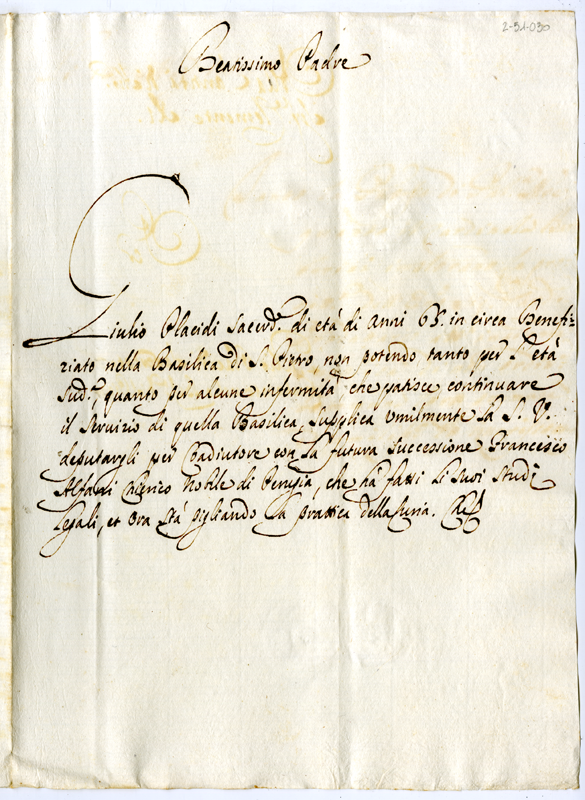 2-51-030
Beatissimo Padre
Giulio Placidi Sacerd.e di età di Anni 65. in circa Benefi:
ziato nella Basilica di S. Pietro, non potendo tanto per l'età
sud.a, quanto per alcune infermità, che patisce, continuare
il servizio di quella Basilica, supplica umilmente la S. V.
deputargli per Coadiutore con la futura successione Francesco
Alfani Clerico Nobile di Perugia, che hà fatti li suoi studi
legali, et ora stà pigliando la prattica della Curia. Che